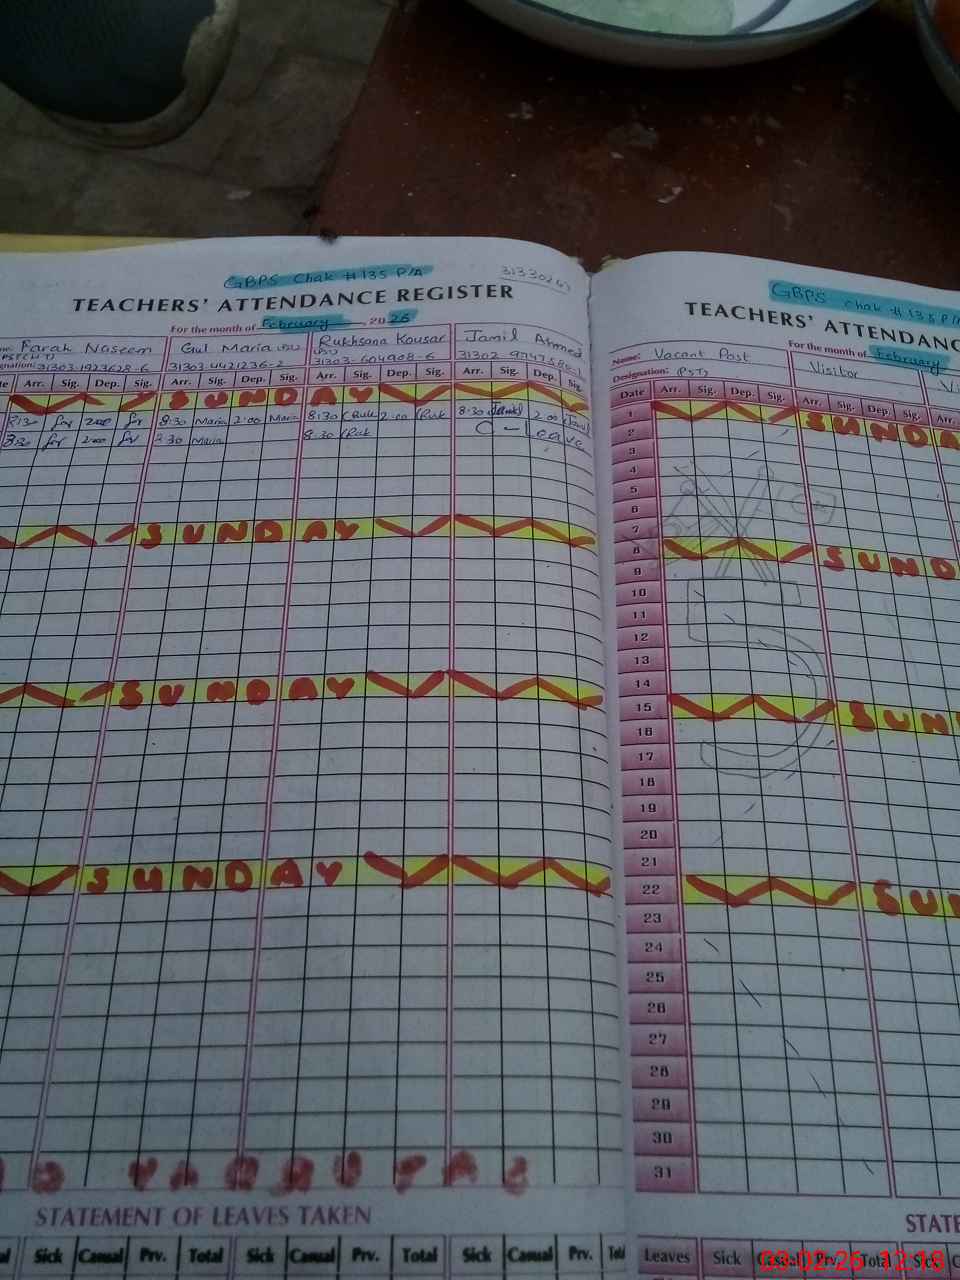 GBPS Chak # 135 P/A
TEACHERS' ATTENDANCE REGISTER
For the month of February, 2026
Farah Naseem Gul Maria Rukhsana Kousar Jamil Ahmed
31303-1923628-6 31303-4421236-2 31303-604908-6 31302
Arr. Sig. Dep. Sig. Arr. Sig. Dep. Sig. Arr. Sig. Dep. Sig. Arr. Sig. Dep. Sig.
SUNDAY
8:30 2:00 8:30 Maria 2:00 Maria 8:30 2:00 8:30 Jamil 2:00 Jamil
8:30 2:00 8:30 Maria 8:30 C-Leave
SUNDAY
SUNDAY
SUNDAY
STATEMENT OF LEAVES TAKEN
Sick Casual Prv. Total Sick Casual Prv. Total Sick Casual Prv.
GBPS Chak # 135 P/A
TEACHERS' ATTENDANC
For the month of February
Name: Vacant Post Visitor
Designation: PST
Date Arr. Sig. Dep. Sig. Arr. Sig. Dep. Sig. Arr.
1 SUNDA
2
3
4
5
6
7
8 SUND
9
10
11
12
13
14
15 SUN
16
17
18
19
20
21
22 SUN
23
24
25
26
27
28
29
30
31
STATE
Leaves Sick Casual Prv. Total Sick
09-02-26 12:18